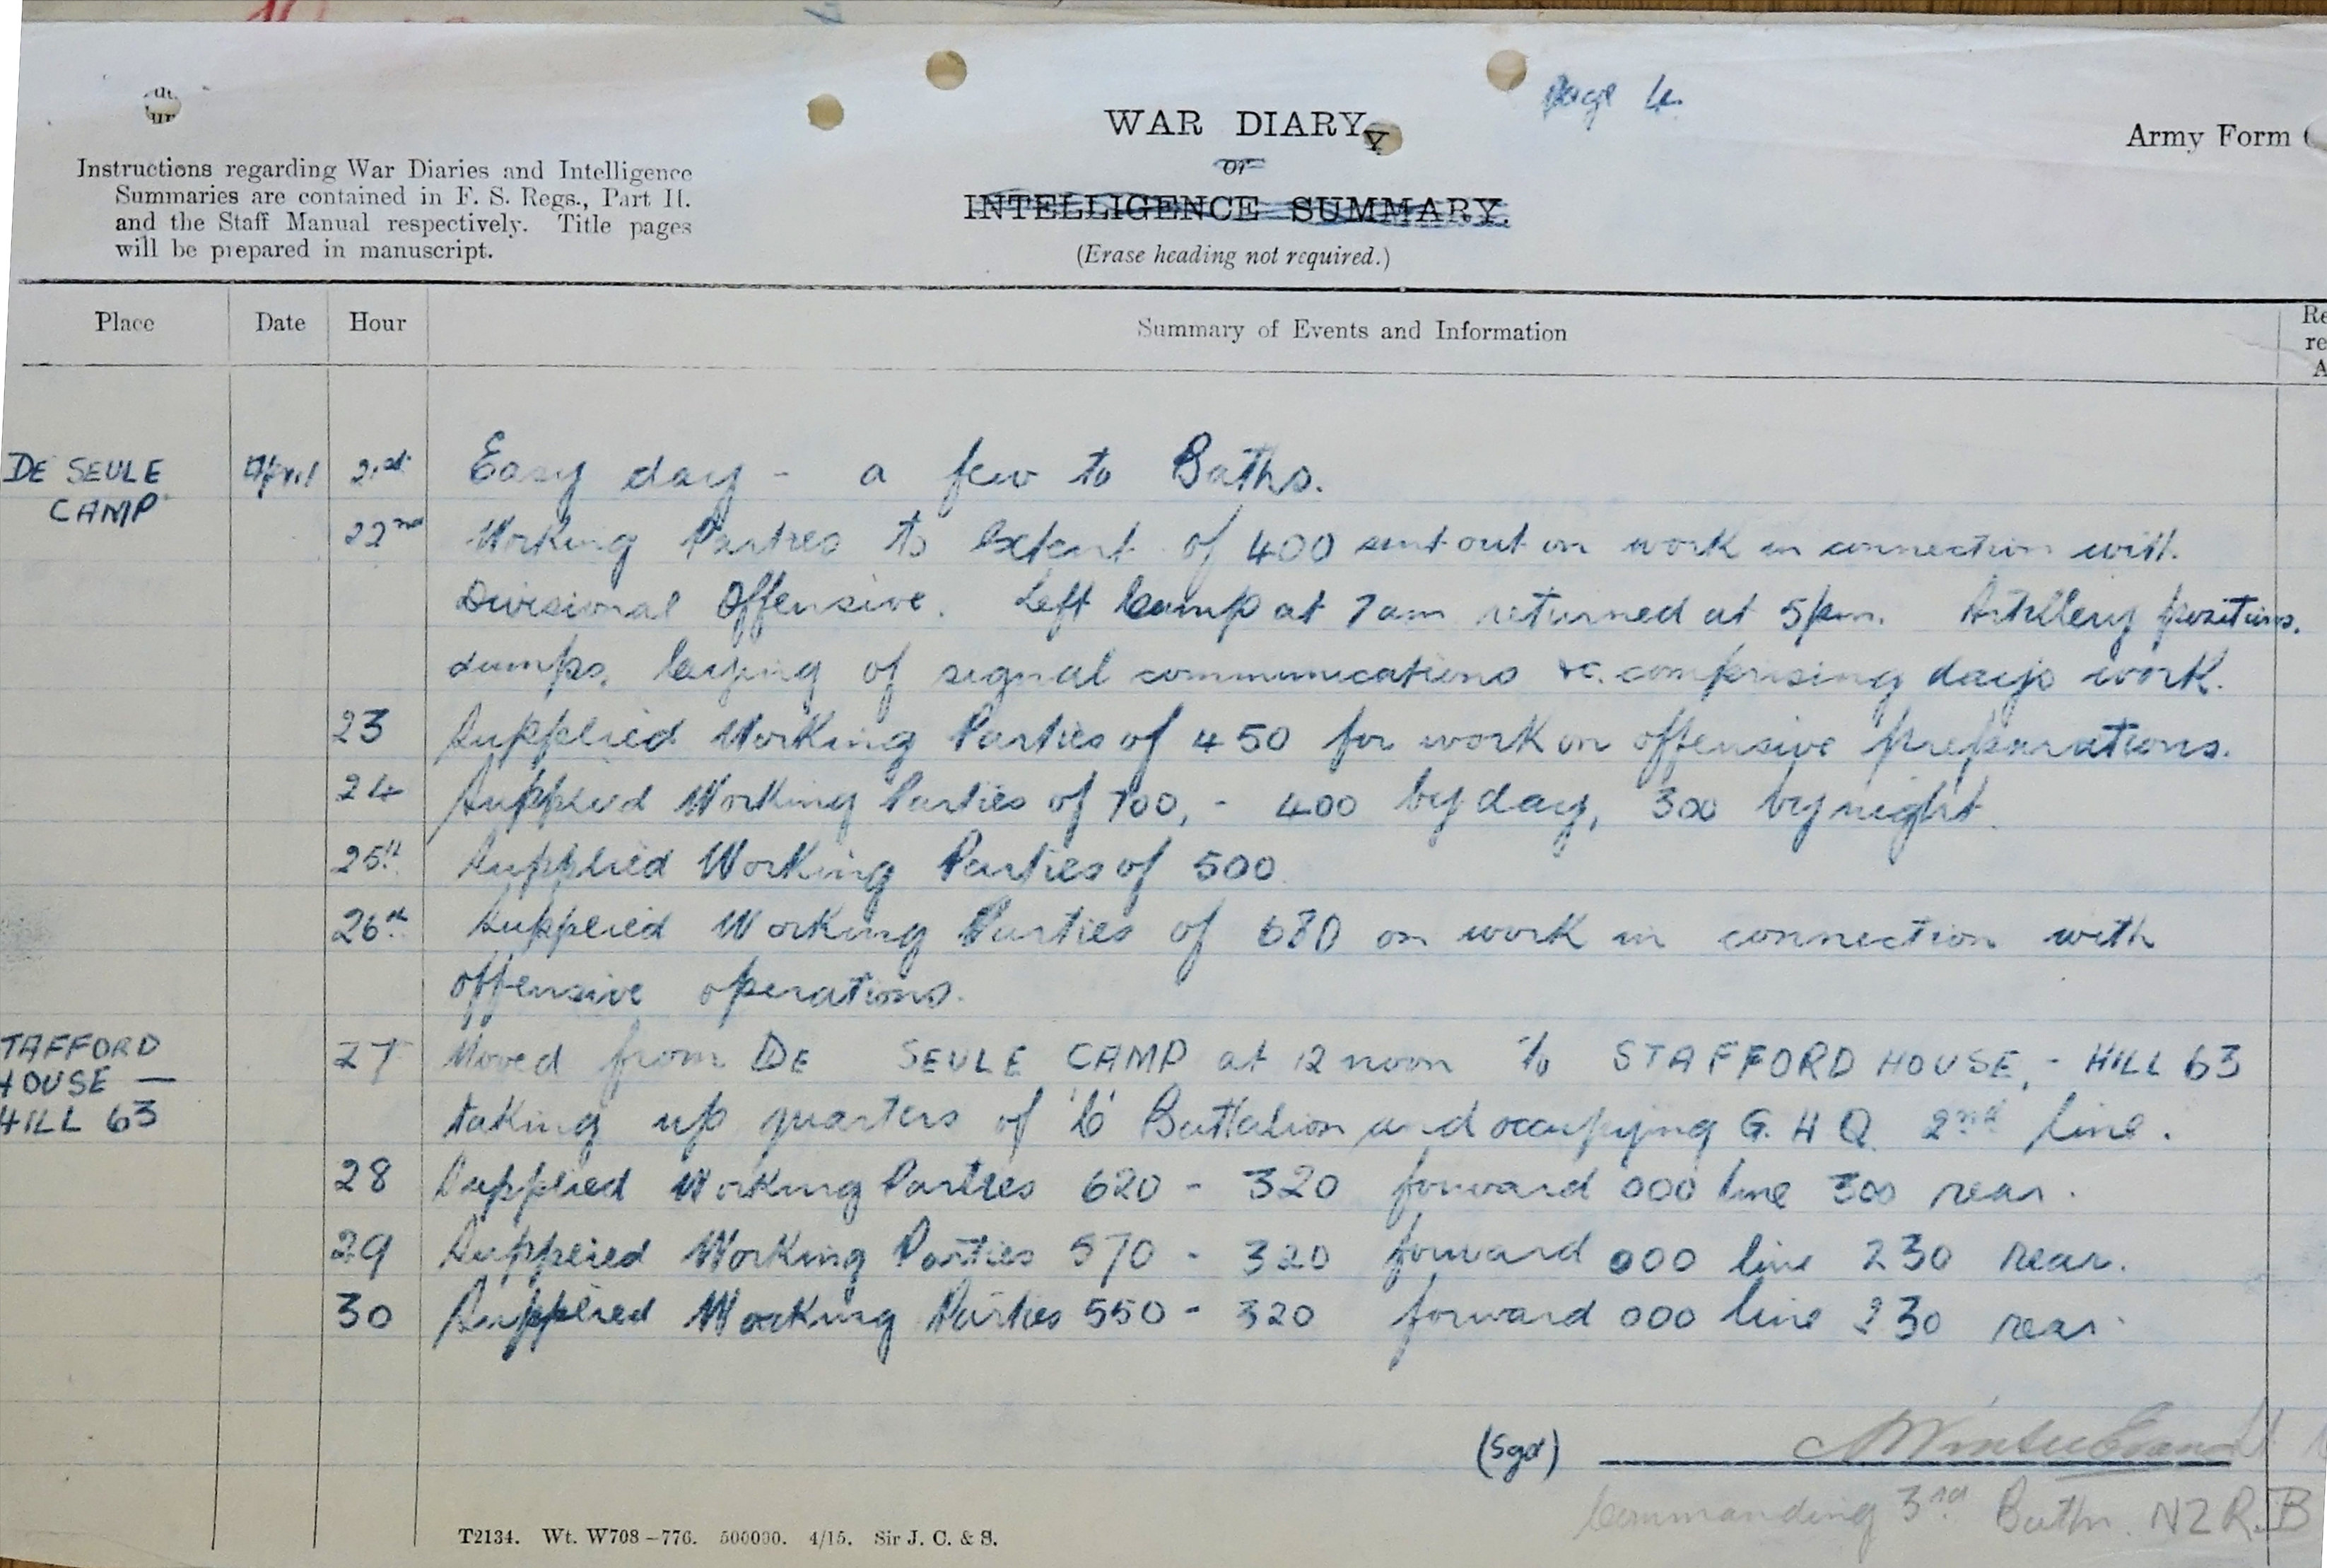 Page 4.
WAR DIARY
Army Form
or
INTELLIGENCE SUMMARY.
(Erase heading not required.)
Instructions regarding War Diaries and Intelligence
Summaries are contained in F. S. Regs., Part II.
and the Staff Manual respectively. Title pages
will be prepared in manuscript.
Place Date Hour Summary of Events and Information
DE SEULE CAMP April 21st Easy day - a few to Baths.
22nd Working Parties to Extent of 400 sent out on work in connection with
Divisional Offensive. Left Camp at 7am returned at 5pm. Artillery positions,
dumps, laying of signal communications &c. comprising days work.
23 Supplied Working Parties of 450 for work on offensive preparations.
24 Supplied Working Parties of 700, - 400 by day, 300 by night.
25th Supplied Working Parties of 500
26th Supplied Working Parties of 680 on work in connection with
offensive operations.
TAFFORD HOUSE — HILL 63 27 Moved from DE SEULE CAMP at 12 noon to STAFFORD HOUSE, - HILL 63
taking up quarters of 'C' Battalion and occupying G.H.Q. 2nd line.
28 Supplied Working Parties 620 - 320 forward 000 line 300 rear.
29 Supplied Working Parties 570 - 320 forward 000 line 230 rear.
30 Supplied Working Parties 550 - 320 forward 000 line 230 rear.
(Sgd) Winter Evans
Commanding 3rd Battn. NZRB
T2134. Wt. W708—776. 500000. 4/15. Sir J. C. & S.